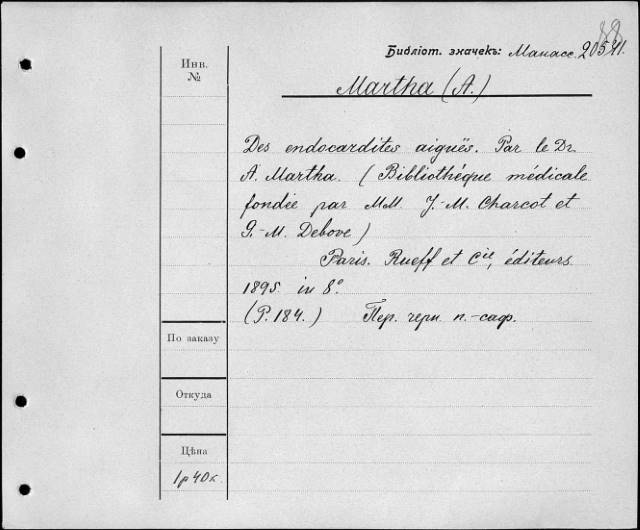 88
Библіот. значекъ: Манасс. 20541.
Инв.
№
Martha (A.)
Des endocardites aiguës. Par le Dr
A. Martha. (Bibliothéque médicale
fondée par MM. J.-M. Charcot et
G.-M. Debove)
Paris. Rueff et Cie, éditeurs.
1895. in 8°.
(P. 184.) Пер. черн. п.-саф.
По заказу
Откуда
Цѣна
1р 40к.